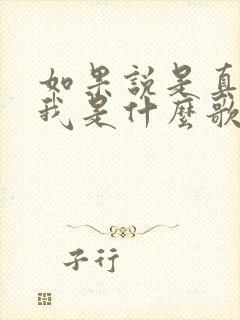 如果說是真
我是什麼歌
子行